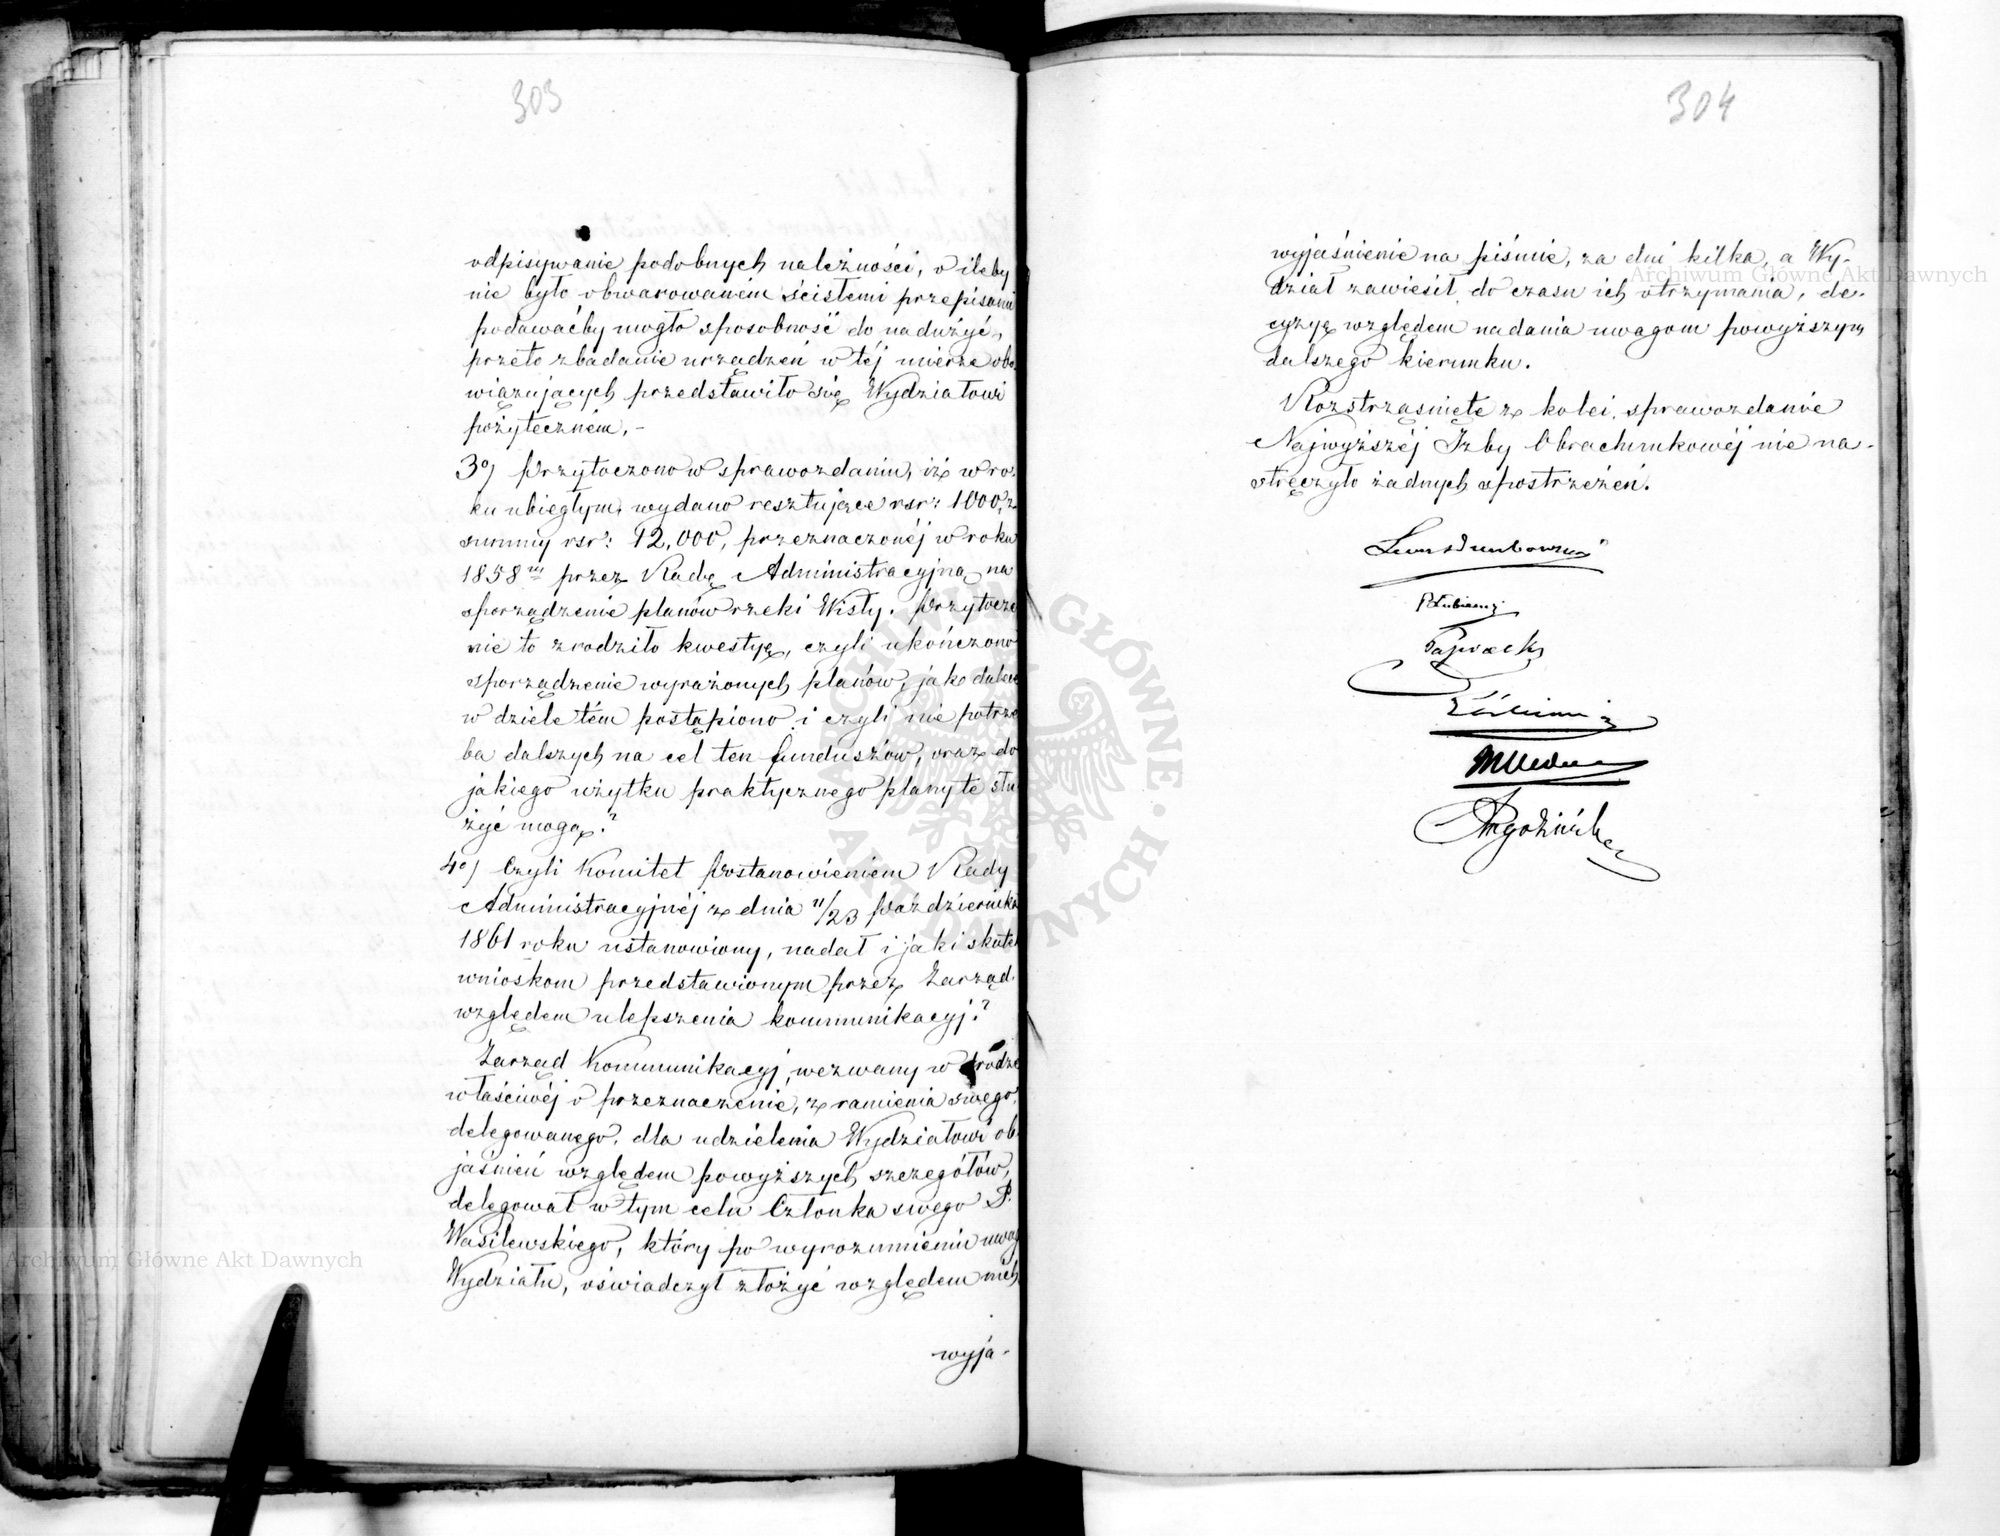 303
odpisywanie podobnych należności, o ileby
nie było obwarowaném ścisłemi przepisami
podawaćby mogło sposobność do nadużyć,
przeto zbadanie urządzeń w téj mierze obo
wiązujących przedstawiło się Wydziałowi
pożyteczném. –
3o) Przytoczono w sprawozdaniu, iż w ro-
ku ubiegłym, wydano resztujące rsr: 1000, z
summy rsr: 12,000, przeznaczonéj w roku
1858m przez Radę Administracyjną na
sporządzenie planów rzeki Wisły. Przytocze
nie to zrodziło kwestyę, czyli ukończono
sporządzenie wyrażonych planów, jak daleko
w dziele tém postąpiono i czyli nie potrze
ba dalszych na cel ten funduszów, oraz do
jakiego użytku praktycznego plany te słu
żyć mogą?
4o) Czyli Komitet Postanowieniem Rady
Administracyjnéj z dnia 11/23 Października
1861 roku ustanowiony, nadał i jaki skutek
wnioskom przedstawionym przez Zarząd
względem ulepszenia kommunikacyj?
Zarząd Kommunikacyj, wezwany w drodze
właściwéj o przeznaczenie, z ramienia swego,
delegowanego, dla udzielenia Wydziałowi ob-
jaśnień względem powyższych szczegółów,
delegował w tym celu Członka swego P.
Wasilewskiego, który po wyrozumieniu uwag
Wydziału, oświadczył złożyć względem nich
wyja-
304
wyjaśnienie na piśmie, za dni kilka, a Wy-
dział zawiesił do czasu ich otrzymania, de-
cyzyę względem nadania uwagom powyższym
dalszego kierunku.
Rozstrząśnięte z kolei sprawozdanie
Najwyższéj Izby Obrachunkowéj nie na-
stręczyło żadnych spostrzeżeń.
Archiwum Główne Akt Dawnych
Archiwum Główne Akt Dawnych
ARCHIWUM GŁÓWNE AKT DAWNYCH